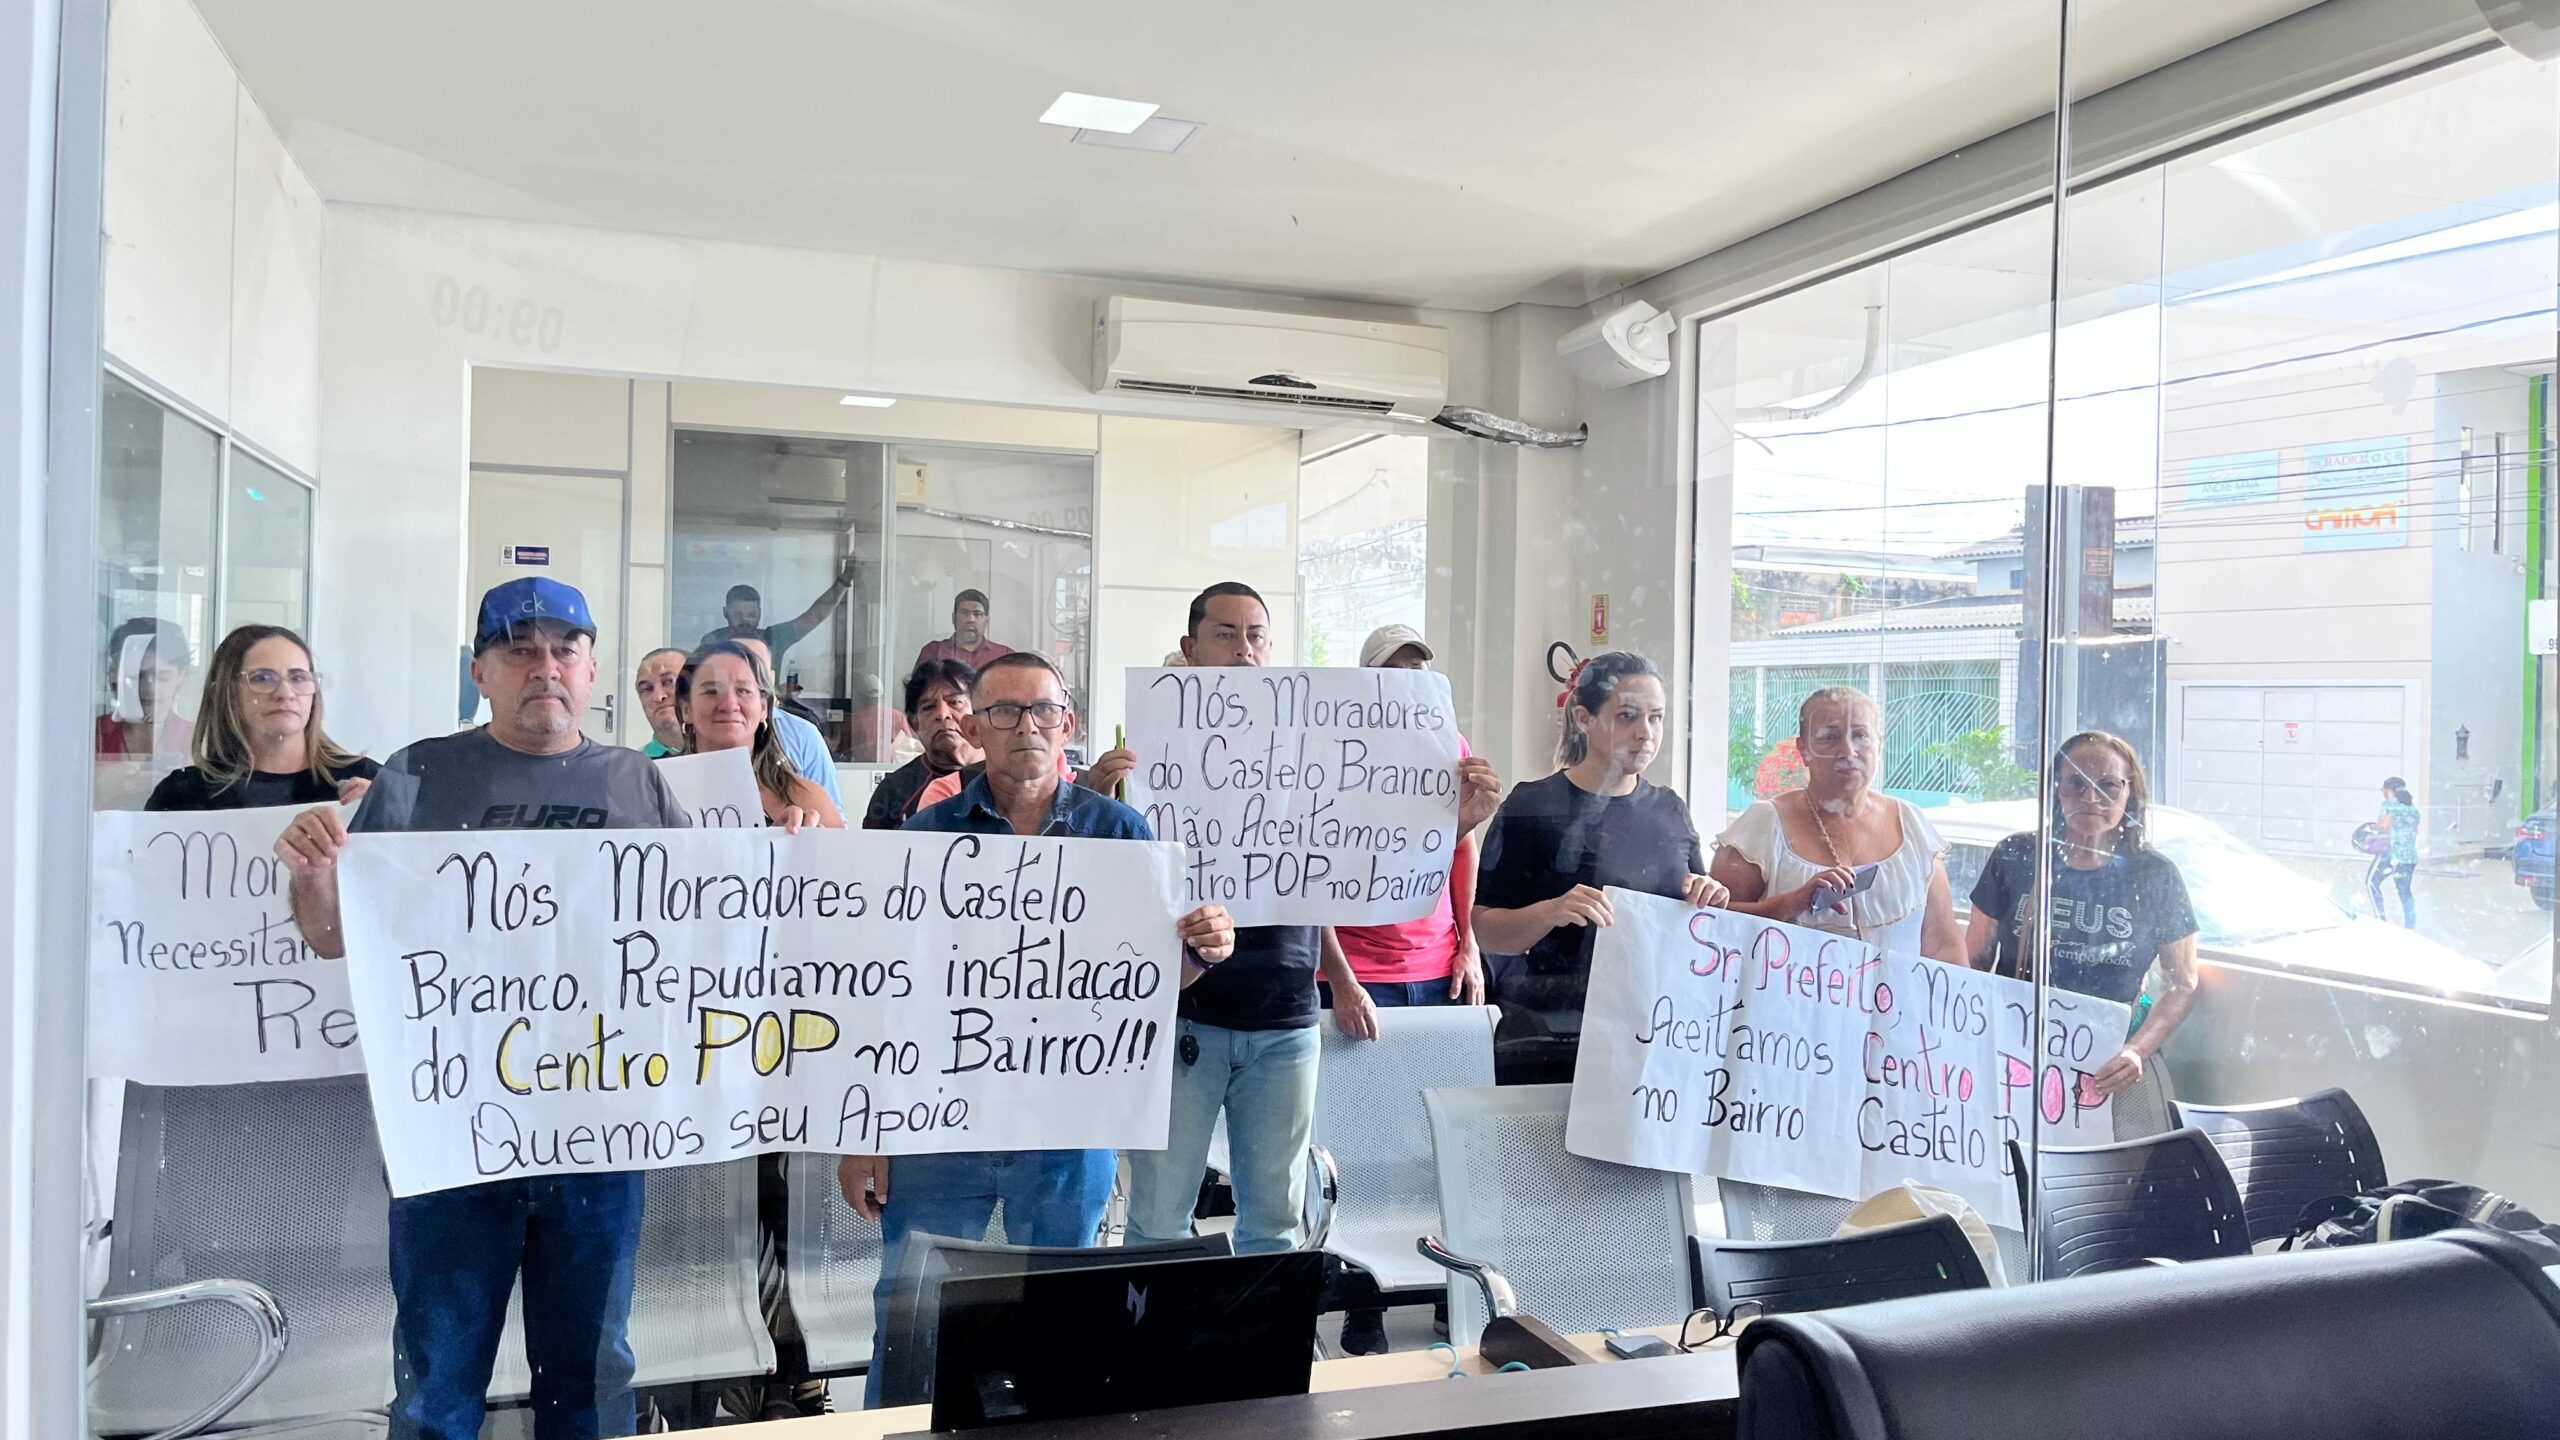 09:00
ck
EURO
Mor
Necessitam
Re
m.
Nós Moradores do Castelo
Branco, Repudiamos instalação
do Centro POP no Bairro!!!
Quemos seu Apoio.
Nós, Moradores
do Castelo Branco,
Não Aceitamos o
ntro POP no bairro
Sr. Prefeito, Nós não
Aceitamos Centro POP
no Bairro Castelo B
DEUS
tempo todo.
ANDRÉ MAIA
RADIOface
CAMOFI